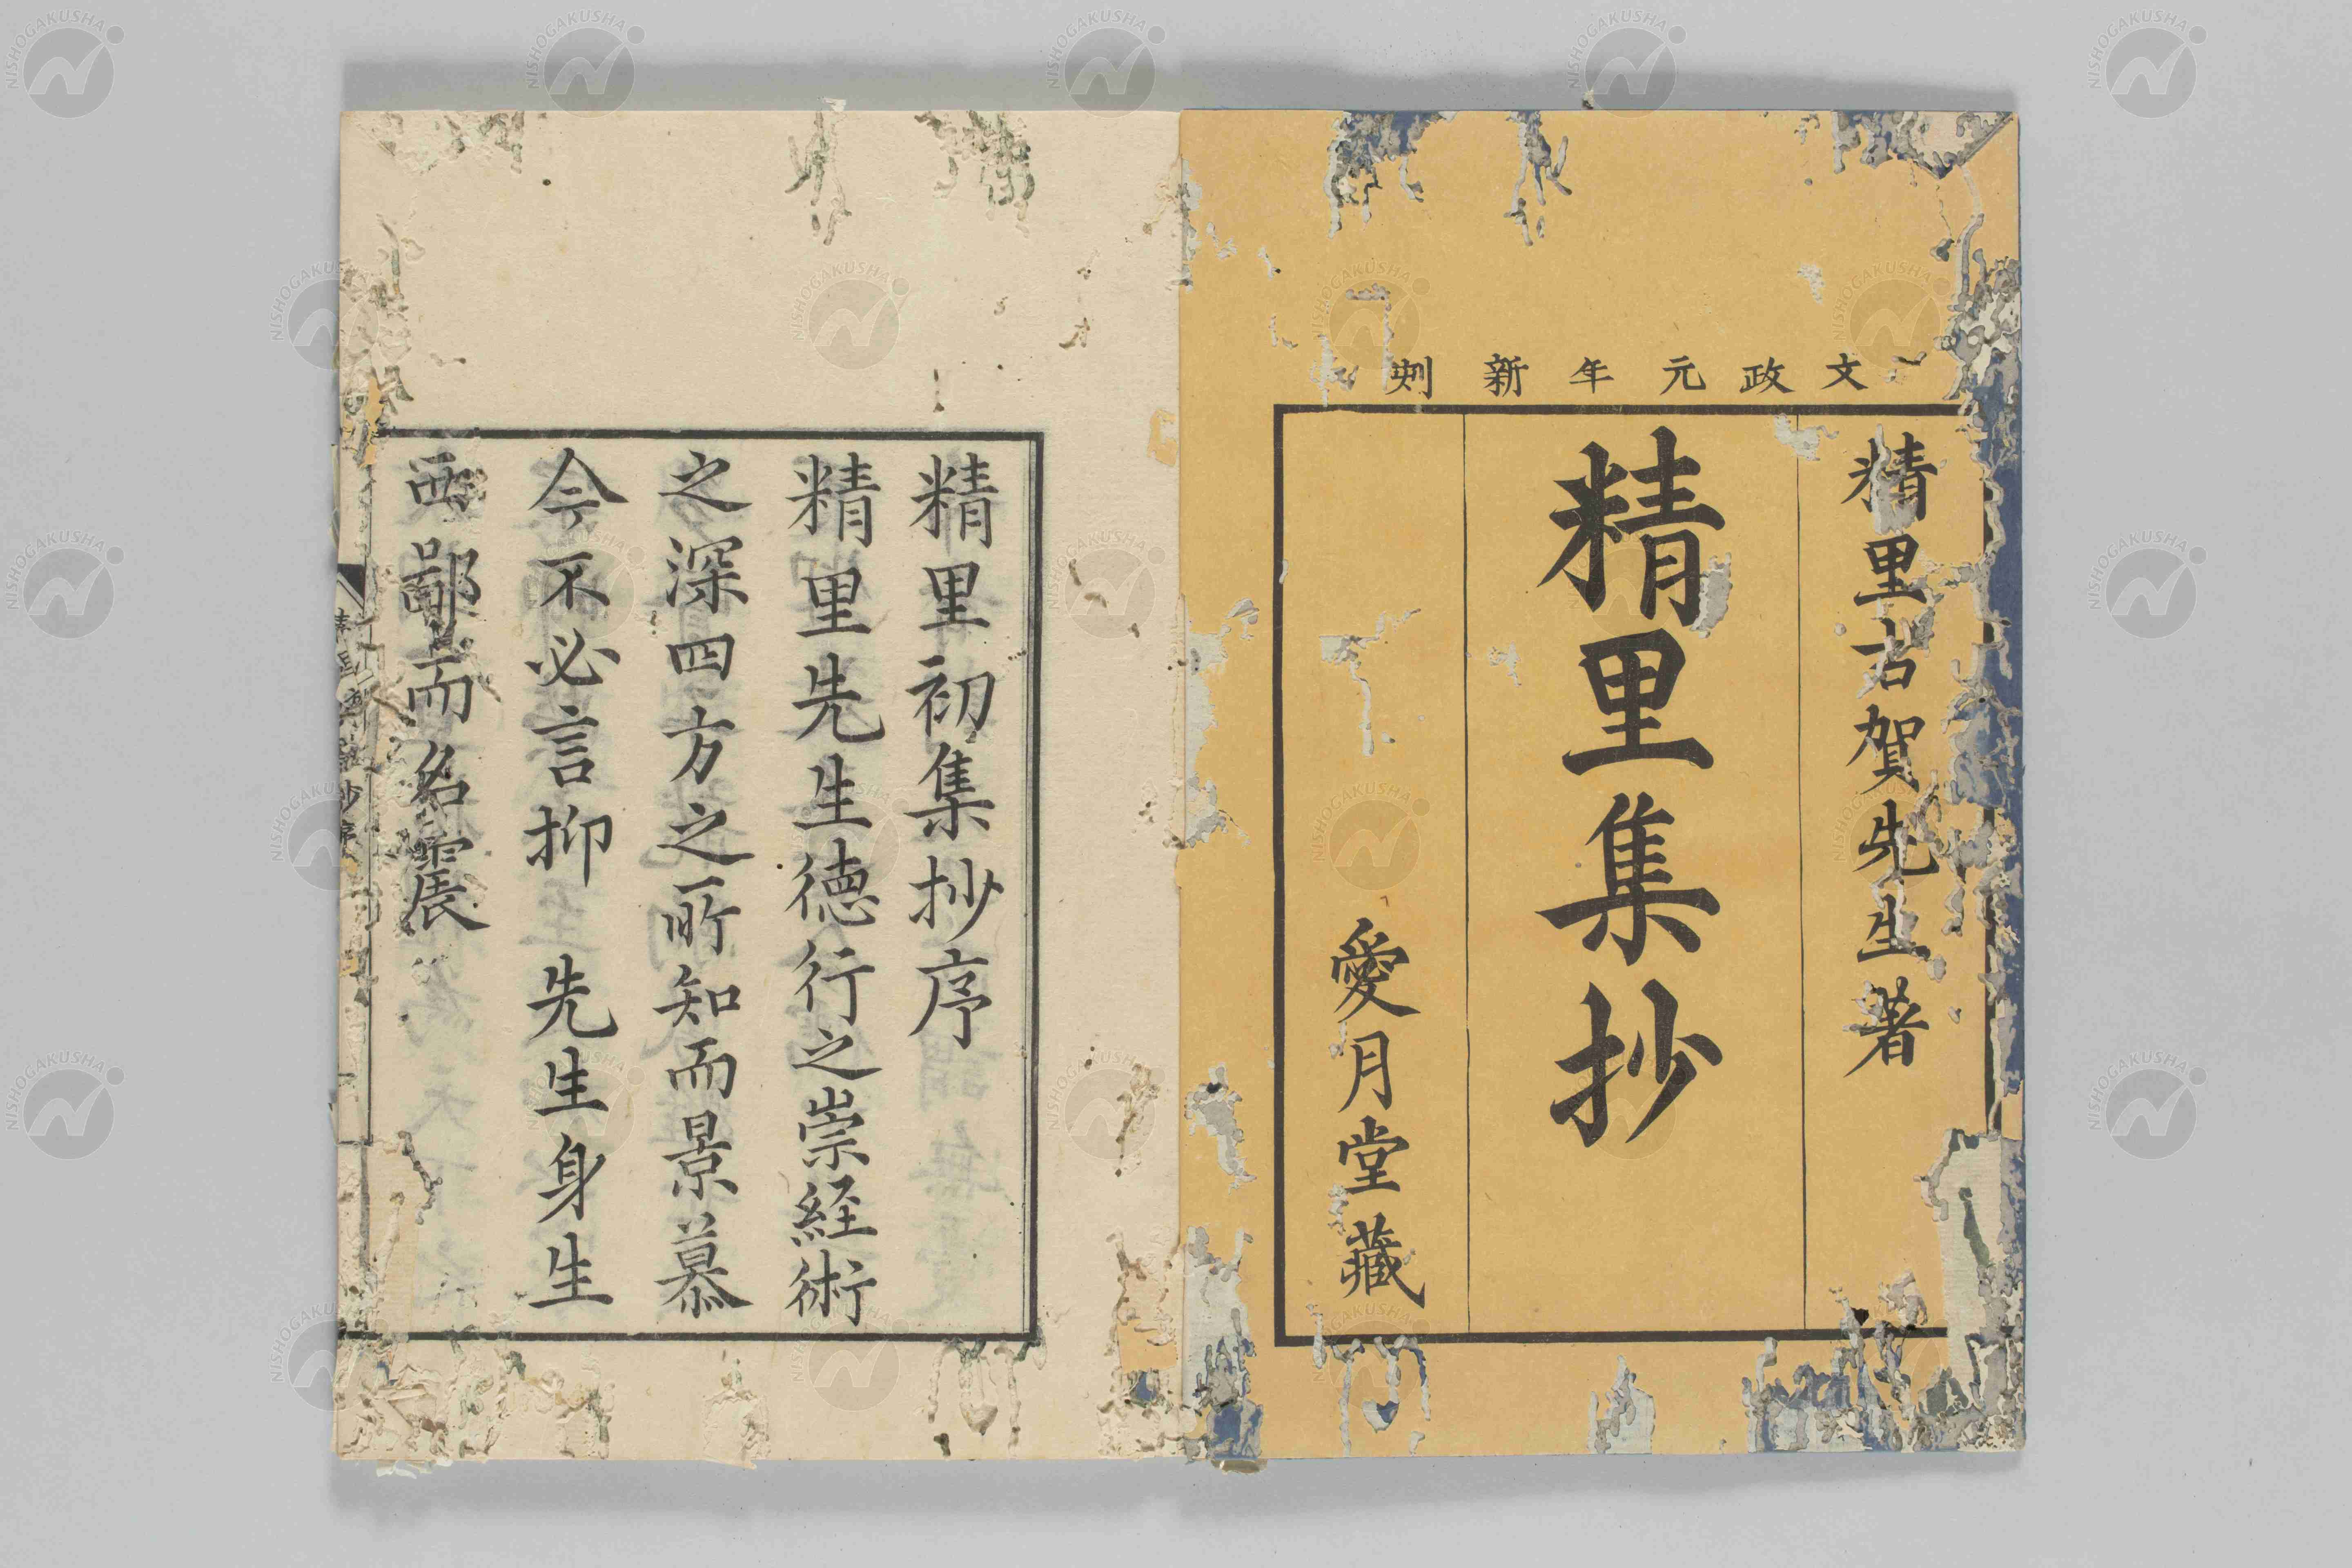 文政元年新刻
精里古賀先生著
精里集抄
愛月堂藏
精里初集抄序
精里先生徳行之崇経術
之深四方之所知而景慕
今不必言抑　先生身生
西鄙而名震
NISHOGAKUSHA